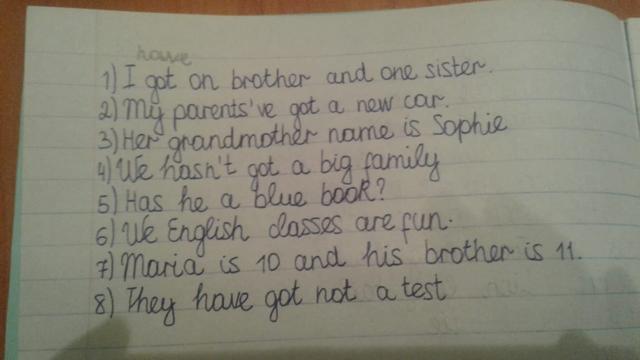 have
1) I got on brother and one sister.
2) My parents've got a new car.
3) Her grandmother name is Sophie
4) We hasn't got a big family
5) Has he a blue book?
6) We English classes are fun.
7) Maria is 10 and his brother is 11.
8) They have got not a test